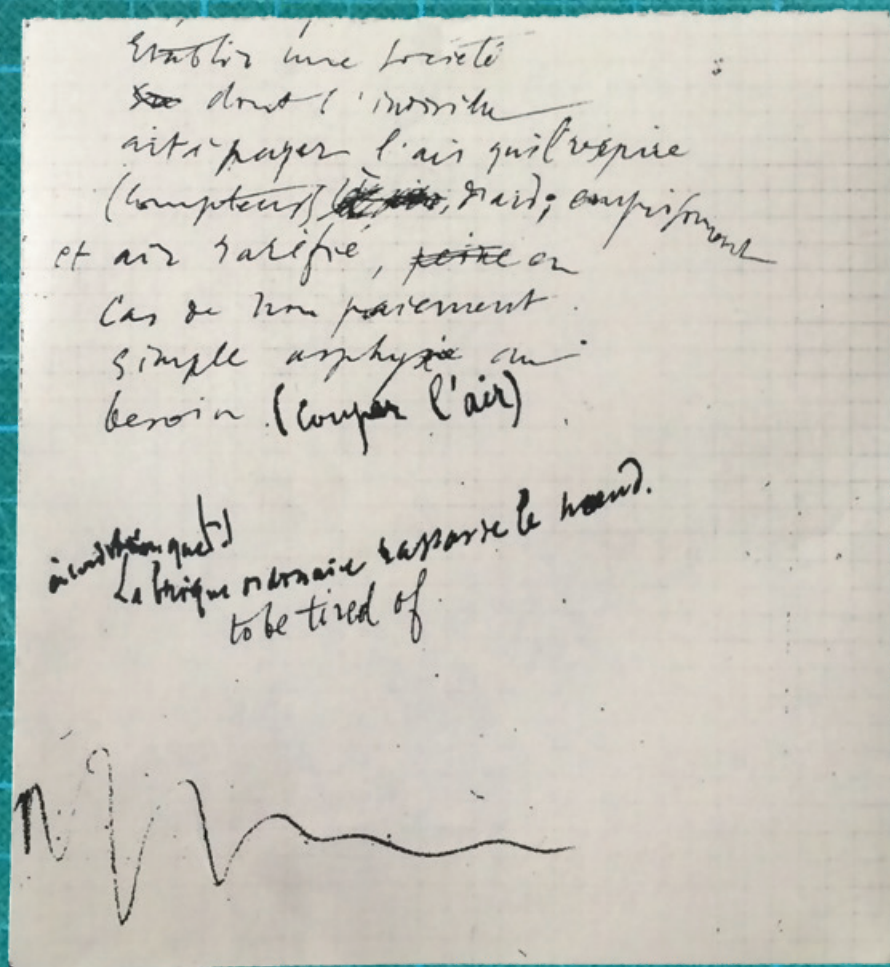 Etablir une société
dont l'individu
ait à payer l'air qu'il respire
(compteurs d'air; emprisonnement
et air raréfié, peine en
cas de non paiement
simple asphyxie au
besoin (couper l'air)
à condition que
La brique ordinaire rassasie le nœud.
to be tired of